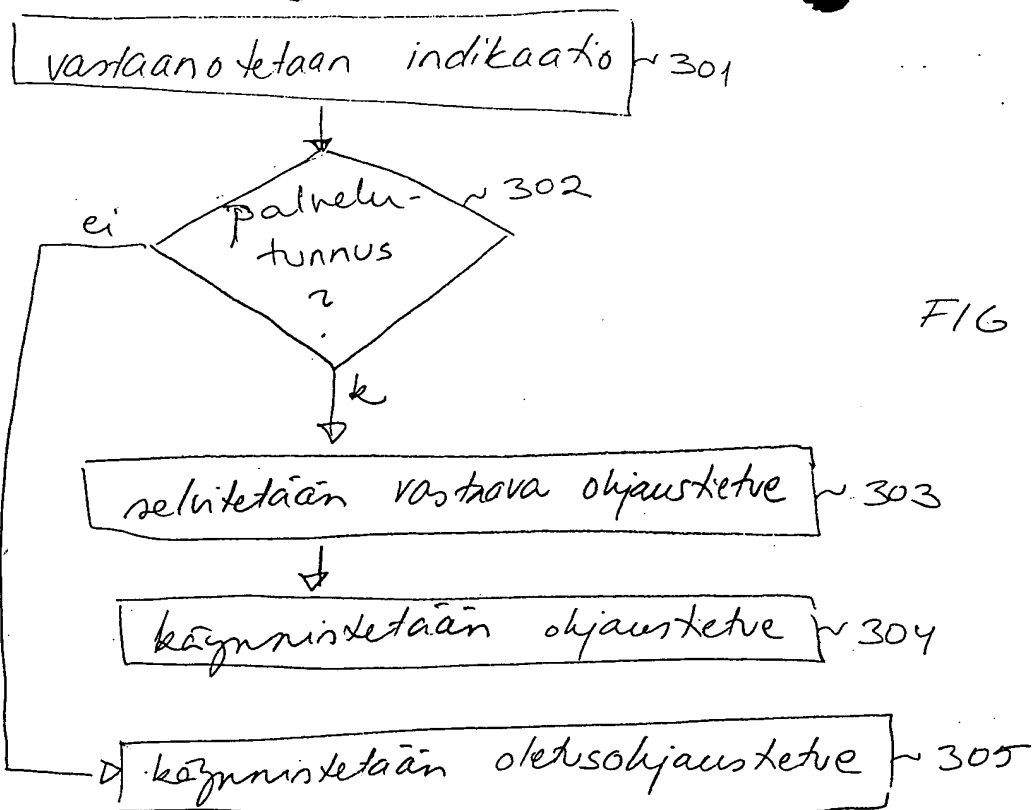 vastaanotetaan indikaatio ~301
palvelu- ~302
tunnus
?
ei
k
FIG
selvitetään vastaava ohjaustietue ~303
käynnistetään ohjaustietue ~304
käynnistetään oletusohjaustietue ~305